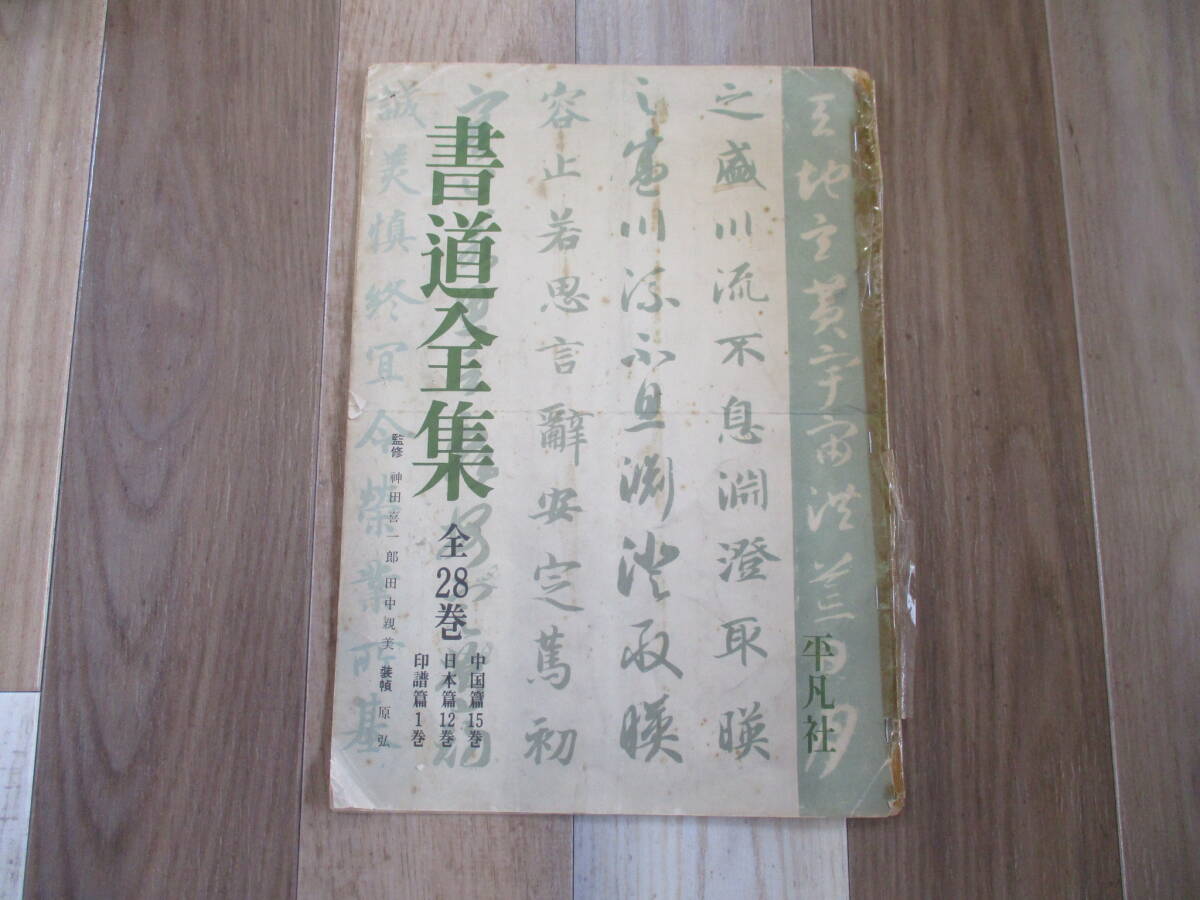 天地玄黄宇宙洪荒日月
平凡社
之盛川流不息淵澄取暎
之盛川流不息淵澄取暎
容止若思言辭安定篤初
書道全集 全28巻
中国篇15巻
日本篇12巻
印譜篇1巻
監修 神田喜一郎 田中親美 装幀 原弘
誠美慎終宜令榮業所基